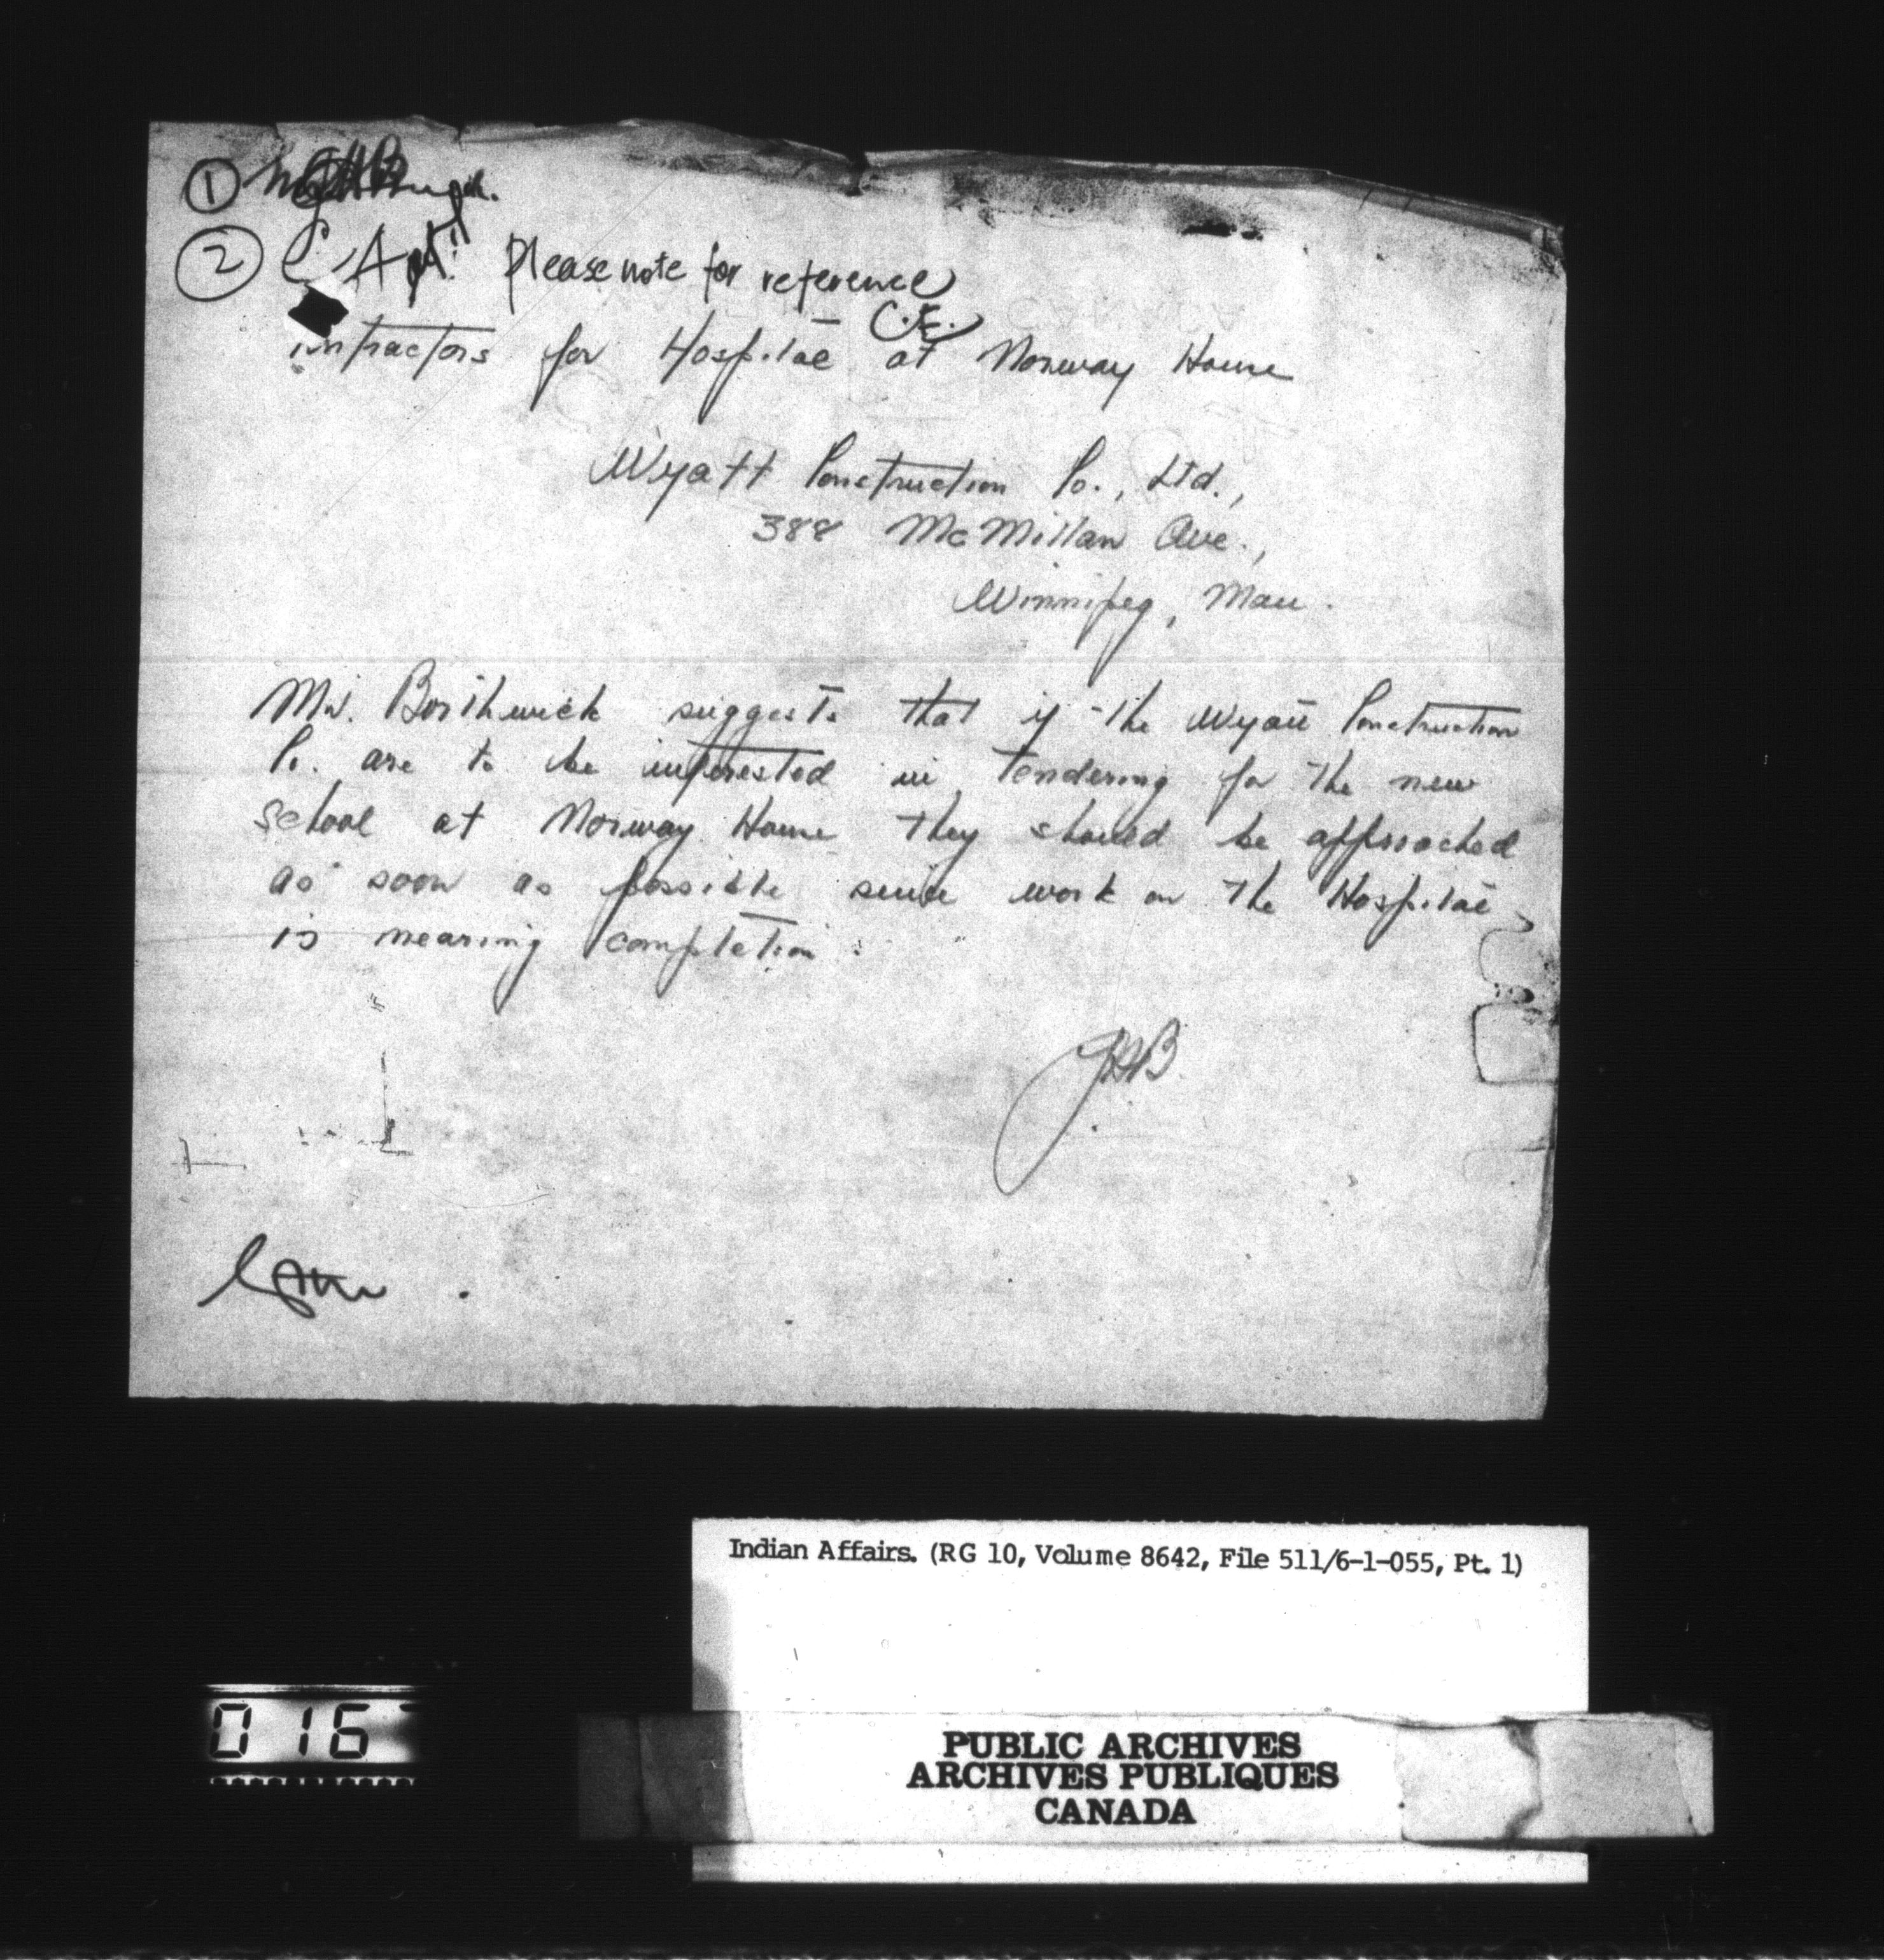 ①
② Please note for reference
C.E.
ntractors for Hospital at Norway House
Wyatt Construction Co., Ltd.,
388 McMillan Ave.,
Winnipeg, Man.
Mr. Borthwick suggests that if the Wyatt Construction
Co. are to be interested in tendering for the new
school at Norway House they should be approached
as soon as possible since work on the Hospital
is nearing completion.
Indian Affairs. (RG 10, Volume 8642, File 511/6-1-055, Pt. 1)
016
PUBLIC ARCHIVES
ARCHIVES PUBLIQUES
CANADA